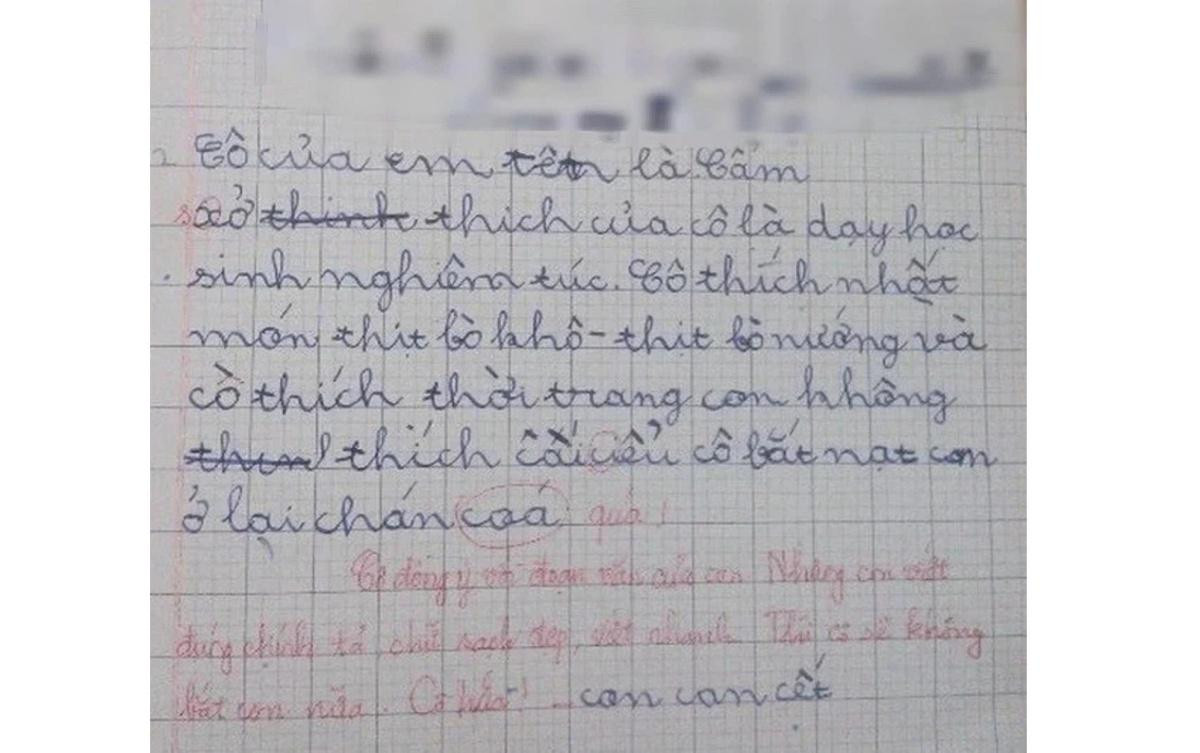 Cô của em tên là Cẩm
s xở thinh thich của cô là dạy học
sinh nghiêm túc. Cô thích nhất
món thịt bò khô-thịt bò nướng và
cò thích thời trang con không
thích cái kiểu cô bắt nạt con
ở lại chán coá quá!
Cô đồng ý với đoạn văn của con Nhưng con viết
đúng chính tả, chữ sạch đẹp, viết nhanh Thì cô sẽ không
bắt con nữa. Cô hứa! con can cết